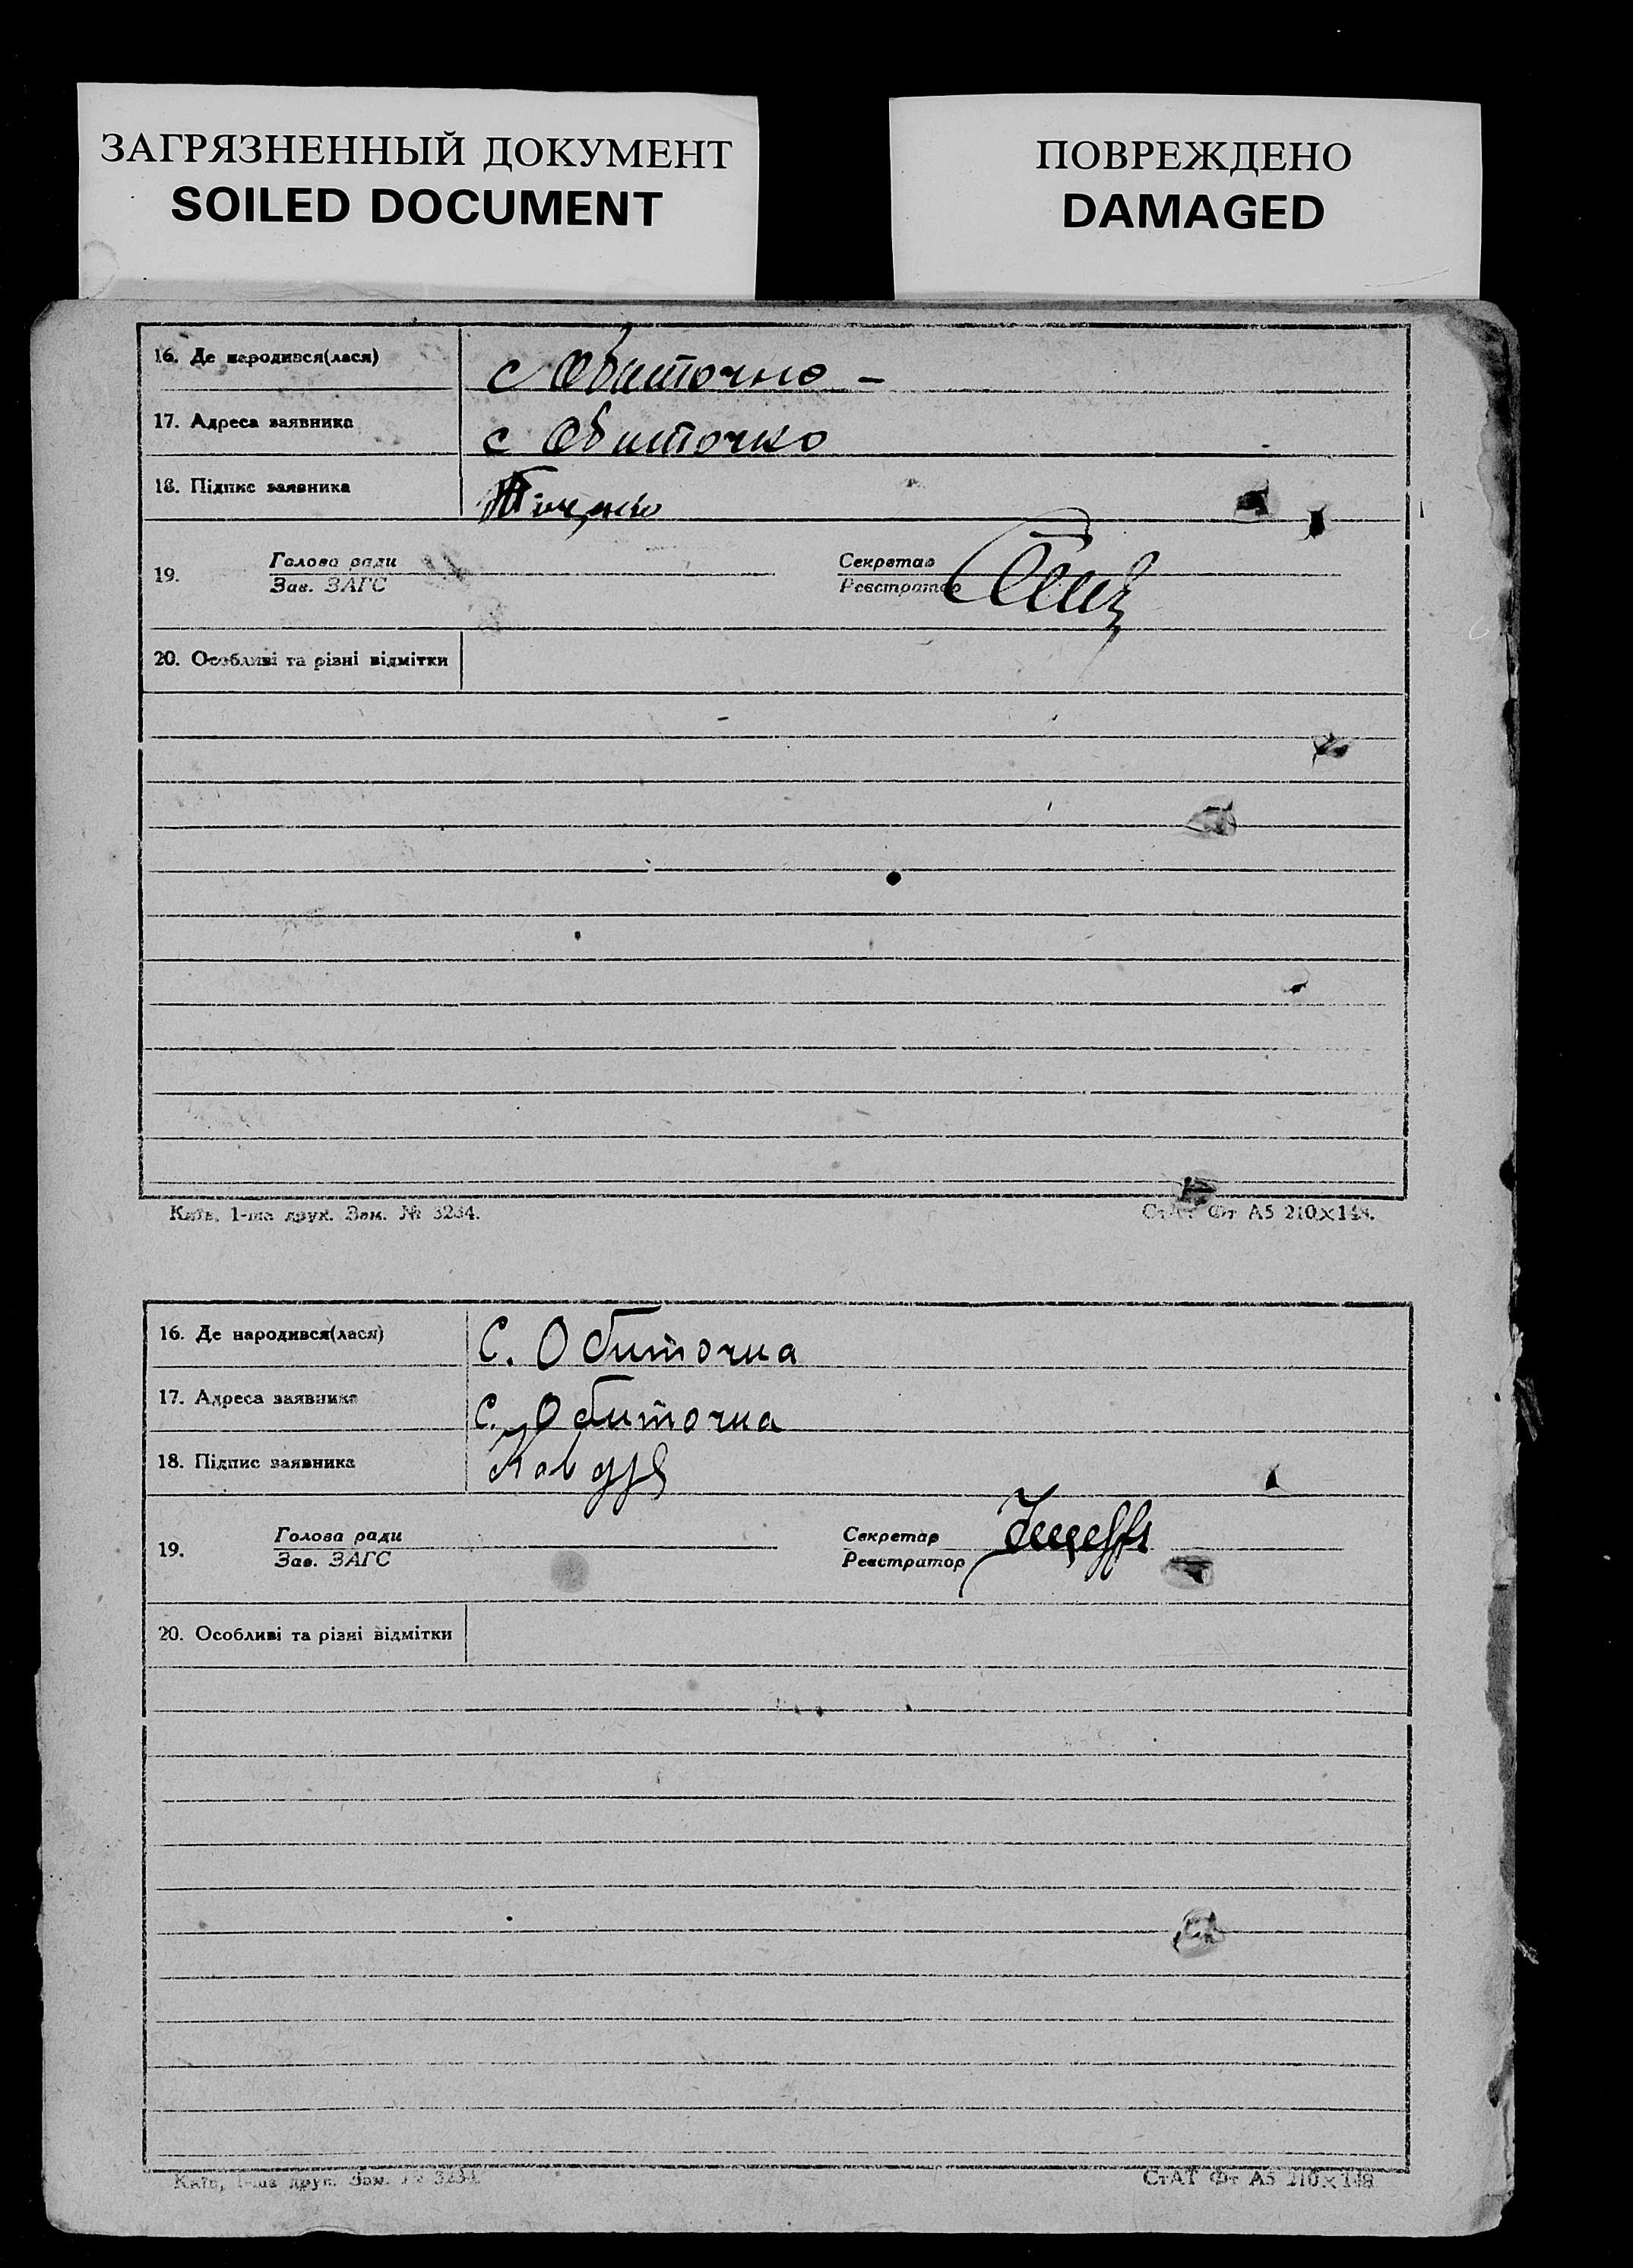 ЗАГРЯЗНЕННЫЙ ДОКУМЕНТ
SOILED DOCUMENT
ПОВРЕЖДЕНО
DAMAGED
16. Де народився(лася) с Обиточно –
17. Адреса заявника с Обиточно
18. Підпис заявника
19. Голова ради Секретар
Зав. ЗАГС Реєстратор
20. Особливі та різні відмітки
Київ, 1-ша друк. Зам. № 3234. СтАТ Фт А5 210×148.
16. Де народився(лася) С. Обиточна
17. Адреса заявника с. Обиточна
18. Підпис заявника
19. Голова ради Секретар
Зав. ЗАГС Реєстратор
20. Особливі та різні відмітки
Київ, 1-ша друк. Зам. № 3234. СтАТ Фт А5 210×148